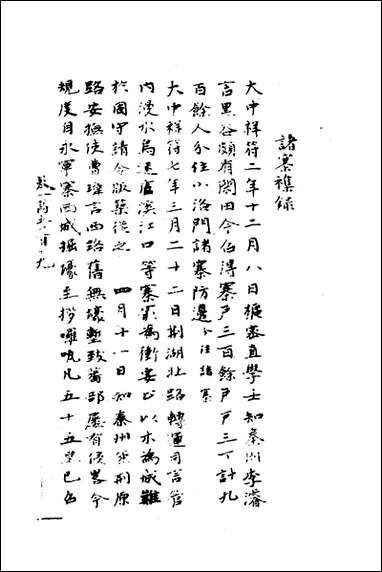 諸寨襍録
大中祥符二年十二月八日樞密直學士知秦州李濬
言黑谷頗有閑田今伯得寨户三百餘户户三丁計九
百餘人分住小洛門諸寨防邊分注諸寨
大中祥符七年三月二十二日荆湖北路轉運司言管
内澧水烏速盧溪江口等寨最為衝要止以木為城難
於固守請令版築從之 四月十一日知秦州兼
路安撫使曹瑋言西路舊無壕塹致蕃部屢有侵畧今
規度自永寧寨西城掘壕至拶囉吼凡五十五里已